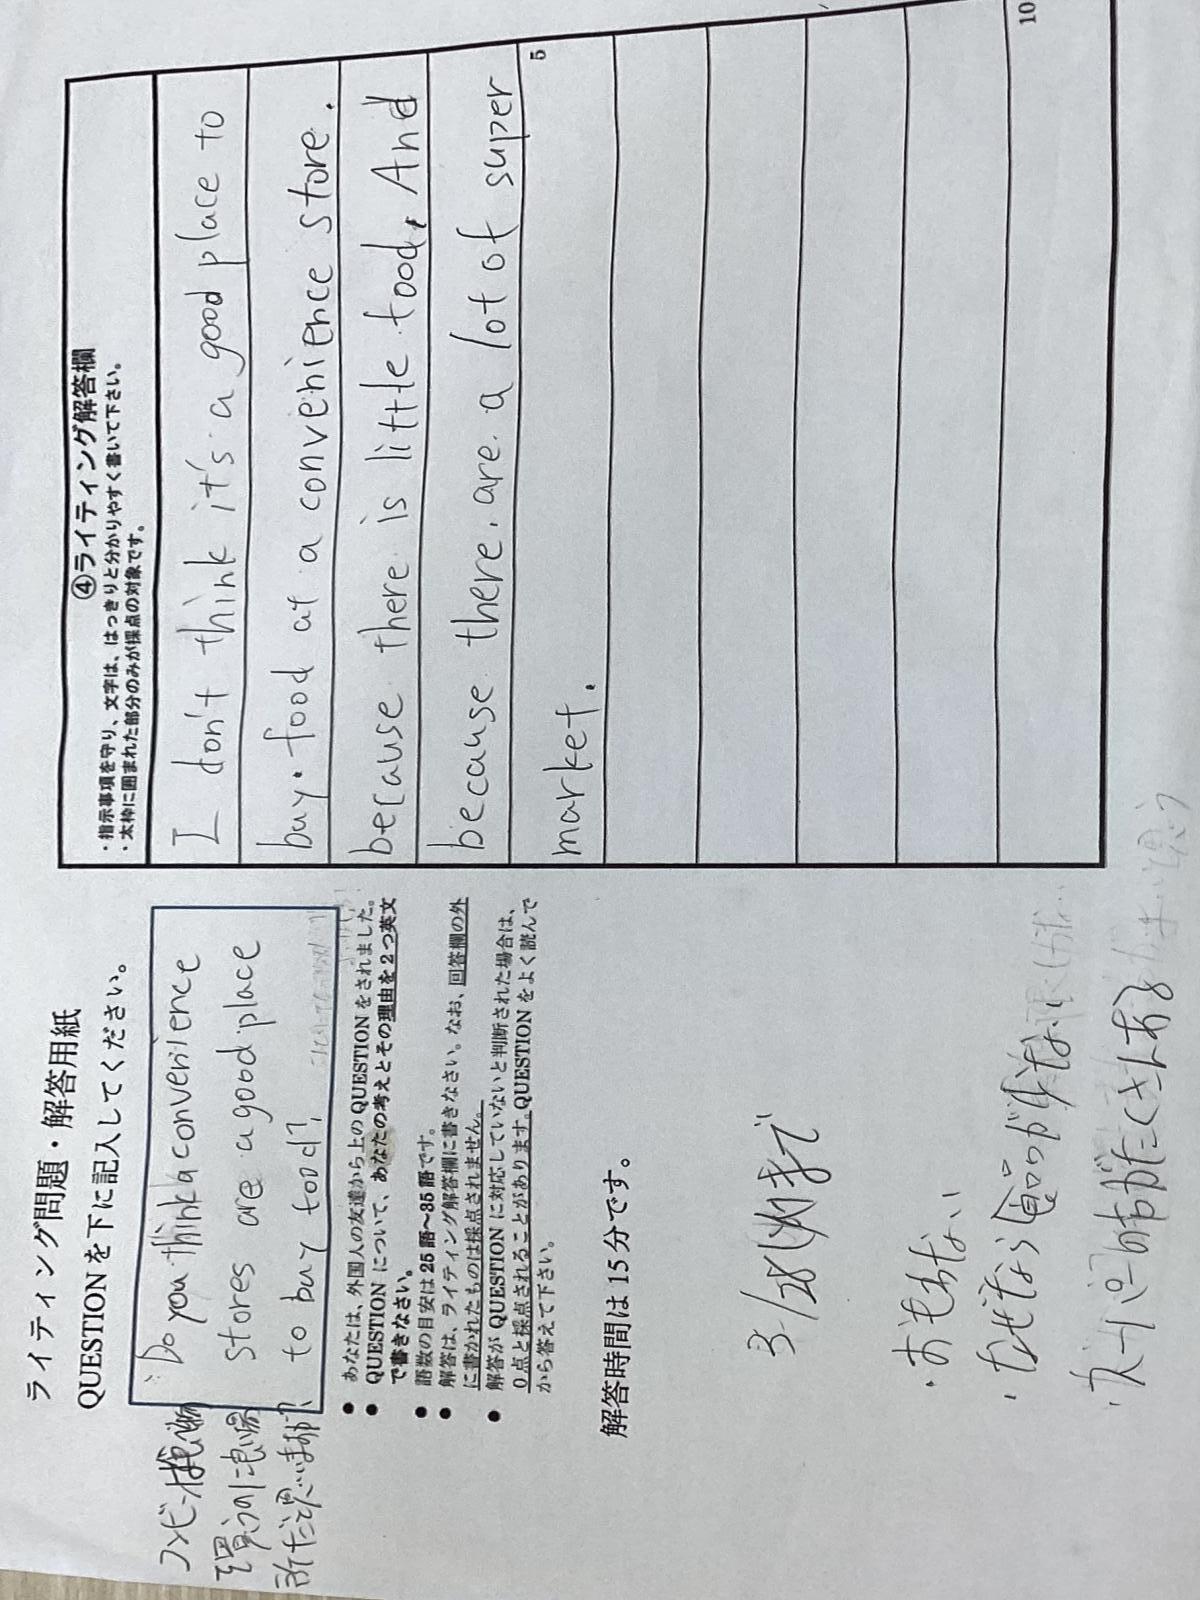 ライティング問題・解答用紙
QUESTIONを下に記入してください。
Do you think a convenience
stores are a good place
to buy food?
コンビニは
を買うのに良い場
所だと思いますか?
● あなたは、外国人の友達から上のQUESTIONをされました。
● QUESTIONについて、あなたの考えとその理由を2つ英文
で書きなさい。
● 語数の目安は25語~35語です。
● 解答は、ライティング解答欄に書きなさい。なお、回答欄の外
に書かれたものは採点されません。
● 解答がQUESTIONに対応していないと判断された場合は、
0点と採点されることがあります。QUESTIONをよく読んで
から答えて下さい。
解答時間は15分です。
3/28
・おもわない
・なぜなら食品が少ない
がたくさんある
④ライティング解答欄
・指示事項を守り、文字は、はっきりと分かりやすく書いて下さい。
・太枠に囲まれた部分のみが採点の対象です。
I don't think it's a good place to
buy food at a convenience store.
because there is little food. And
because there are a lot of super
market.
5
10